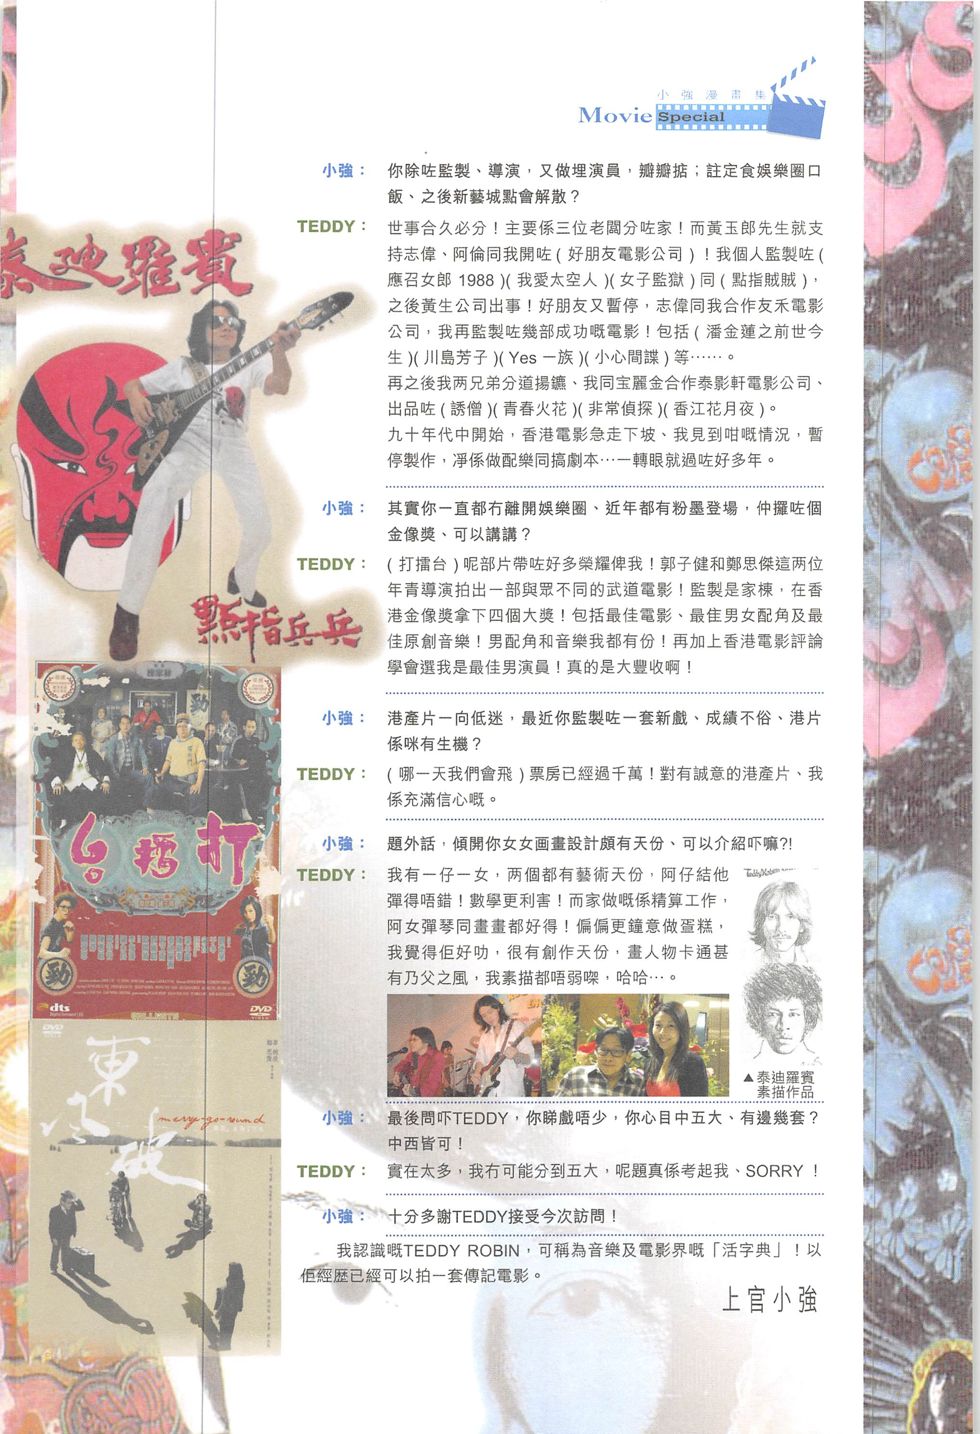 小強漫畫集
Movie Special
小強： 你除咗監製、導演，又做埋演員，瓣瓣掂；註定食娛樂圈口
飯、之後新藝城點會解散？
TEDDY： 世事合久必分！主要係三位老闆分咗家！而黃玉郎先生就支
持志偉、阿倫同我開咗 ( 好朋友電影公司 ) ！我個人監製咗 (
應召女郎 1988 )( 我愛太空人 )( 女子監獄 ) 同 ( 點指賊賊 )，
之後黃生公司出事！好朋友又暫停，志偉同我合作友禾電影
公司，我再監製咗幾部成功嘅電影！包括 ( 潘金蓮之前世今
生 )( 川島芳子 )( Yes 一族 )( 小心間諜 ) 等⋯⋯。
再之後我两兄弟分道揚鑣、我同宝麗金合作泰影軒電影公司、
出品咗 ( 誘僧 )( 青春火花 )( 非常偵探 )( 香江花月夜 )。
九十年代中開始，香港電影急走下坡、我見到咁嘅情況，暫
停製作，淨係做配樂同搞劇本⋯一轉眼就過咗好多年。
小強： 其實你一直都冇離開娛樂圈、近年都有粉墨登場，仲攞咗個
金像獎、可以講講？
TEDDY： ( 打擂台 ) 呢部片帶咗好多榮耀俾我！郭子健和鄭思傑這两位
年青導演拍出一部與眾不同的武道電影！監製是家棟，在香
港金像獎拿下四個大獎！包括最佳電影、最隹男女配角及最
佳原創音樂！男配角和音樂我都有份！再加上香港電影評論
學會選我是最佳男演員！真的是大豐收啊！
小強： 港產片一向低迷，最近你監製咗一套新戲、成績不俗、港片
係咪有生機？
TEDDY： ( 哪一天我們會飛 ) 票房已經過千萬！對有誠意的港產片、我
係充滿信心嘅。
小強： 題外話，傾開你女女画畫設計頗有天份、可以介紹吓嘛?!
TEDDY： 我有一仔一女，两個都有藝術天份，阿仔結他
彈得唔錯！數學更利害！而家做嘅係精算工作，
阿女彈琴同畫畫都好得！偏偏更鐘意做蛋糕，
我覺得佢好叻，很有創作天份，畫人物卡通甚
有乃父之風，我素描都唔弱㗎，哈哈⋯。
▲泰迪羅賓
素描作品
小強： 最後問吓TEDDY，你睇戲唔少，你心目中五大、有邊幾套？
中西皆可！
TEDDY： 實在太多，我冇可能分到五大，呢題真係考起我、SORRY ！
小強： 十分多謝TEDDY接受今次訪問！
我認識嘅TEDDY ROBIN，可稱為音樂及電影界嘅「活字典」！以
佢經歷已經可以拍一套傳記電影。
上官小強
泰迪羅賓
點指兵兵
打擂台
勁
勁
dts
DVD
DVD
東風破
merry-go-round